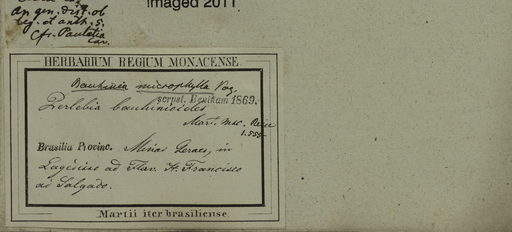 imaged 2011
an gen. dist. ob
leg. et anth. 5.
Cfr. Pauletia
Cav.
HERBARIUM REGIUM MONACENSE.
Bauhinia microphylla Vog.
scrpst. Bentham 1869.
Perlebia bauhinioides
Mart. msc.
1.555
Brasilia Provinc. Minas Geraes, in
ad Fluv. St. Francisco
ad Salgado.
Martii iter brasiliense.